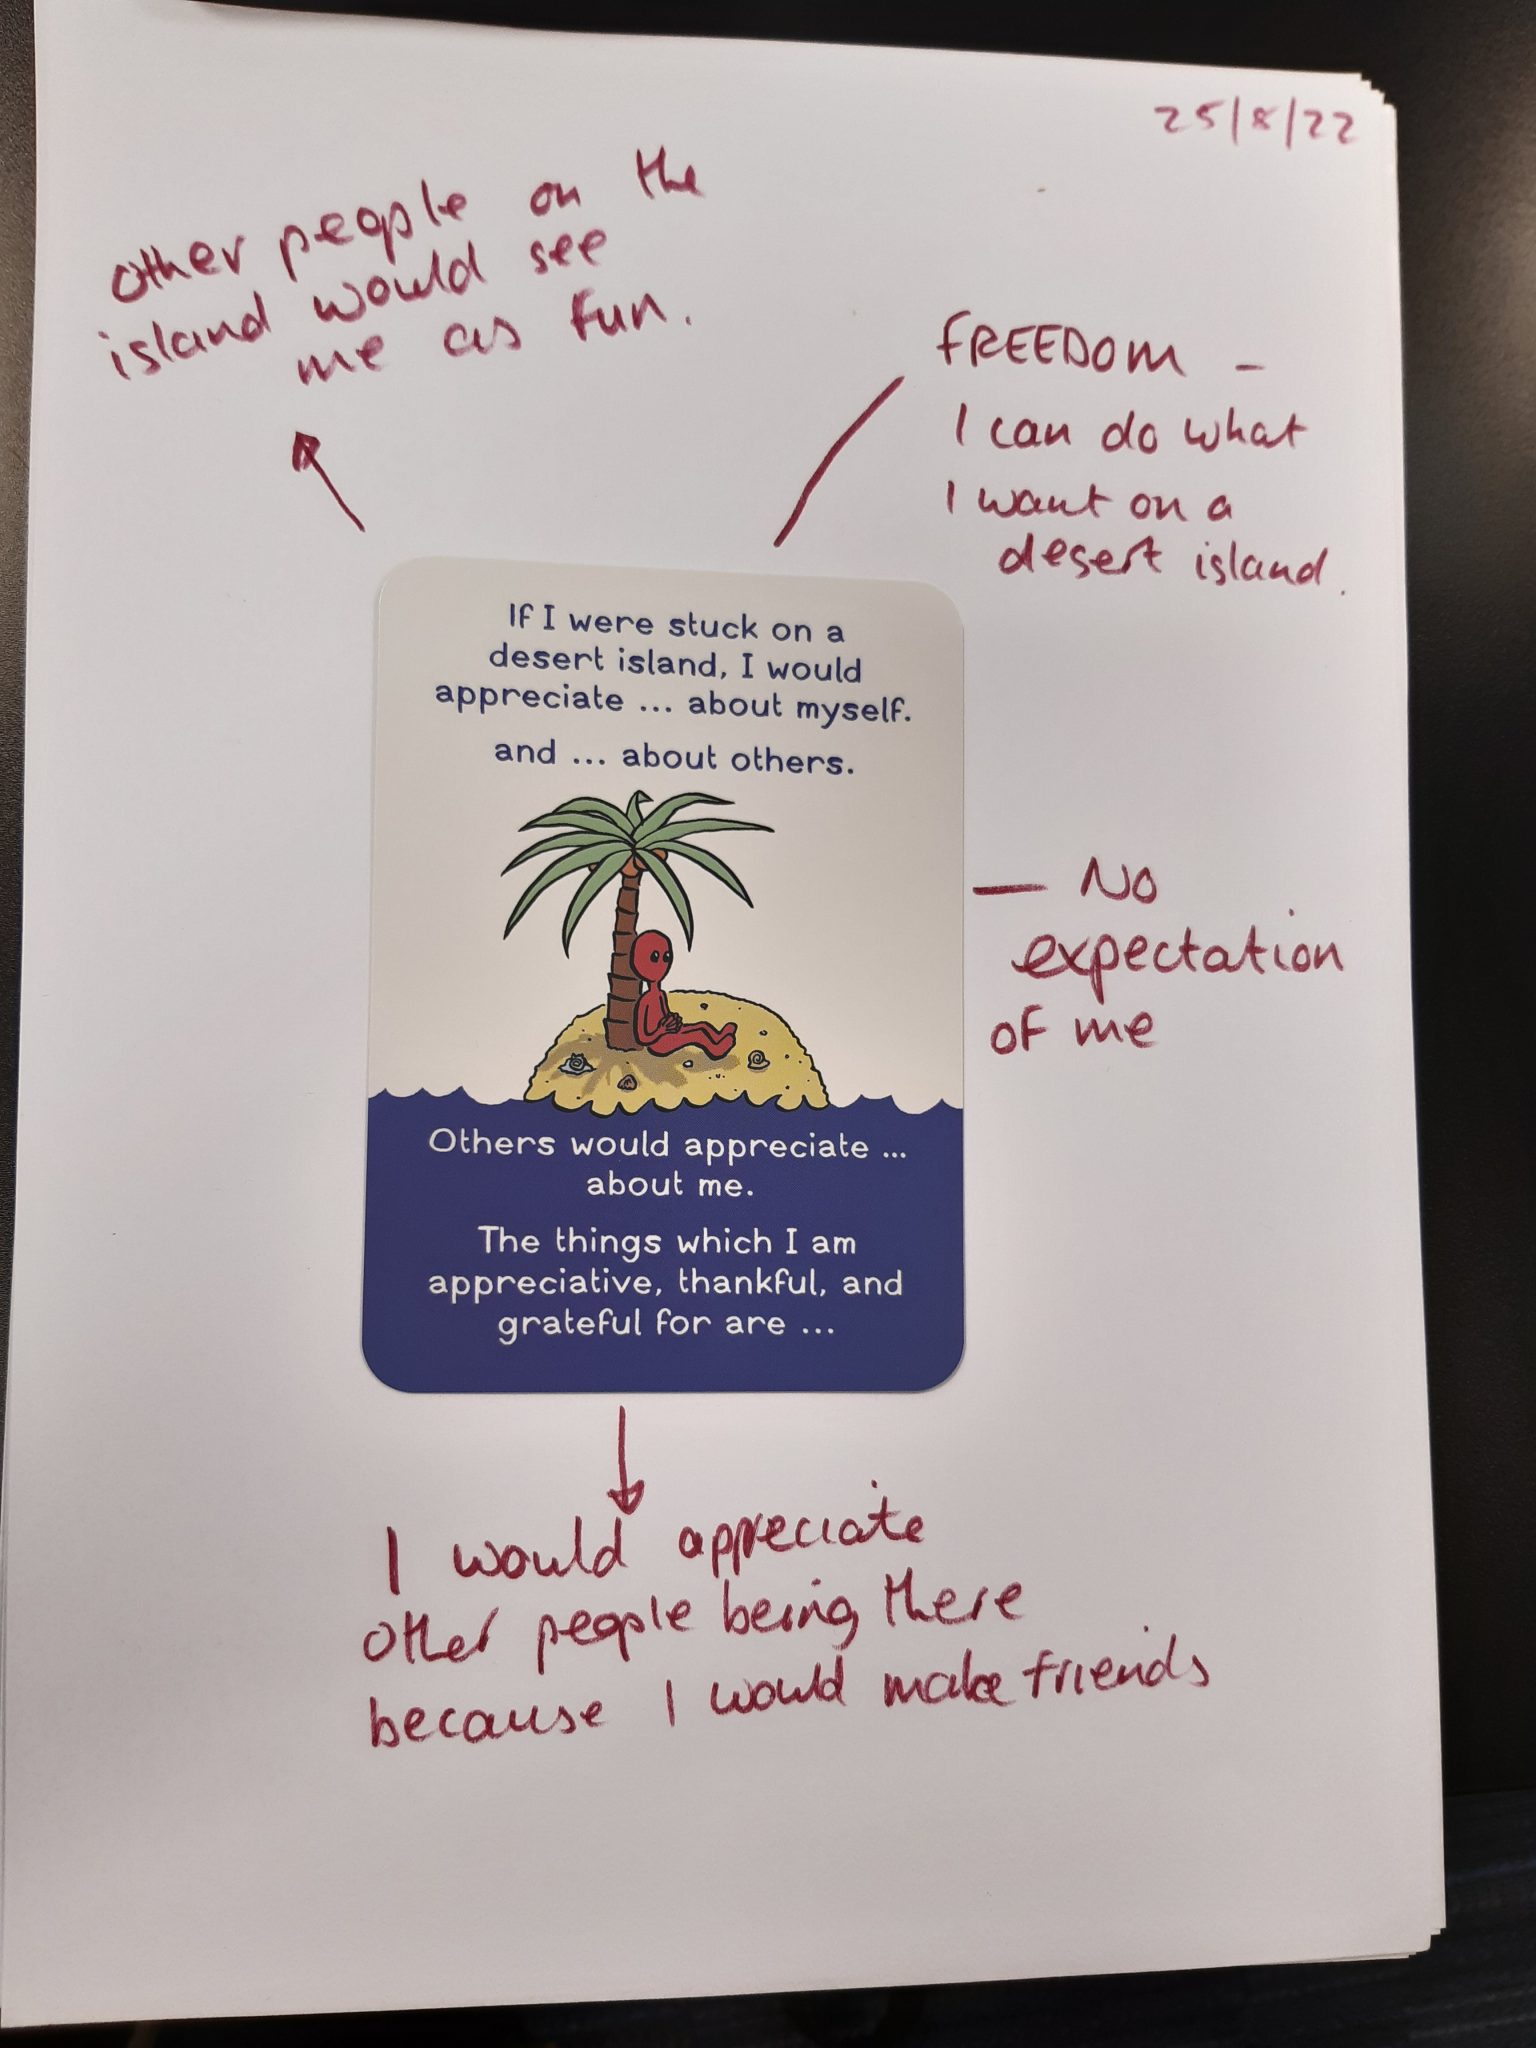 25/8/22
Other people on the
island would see
me as fun.
FREEDOM -
I can do what
I want on a
desert island.
If I were stuck on a
desert island, I would
appreciate ... about myself.
and ... about others.
- No
expectation
of me
Others would appreciate ...
about me.
The things which I am
appreciative, thankful, and
grateful for are ...
I would appreciate
other people being there
because I would make friends